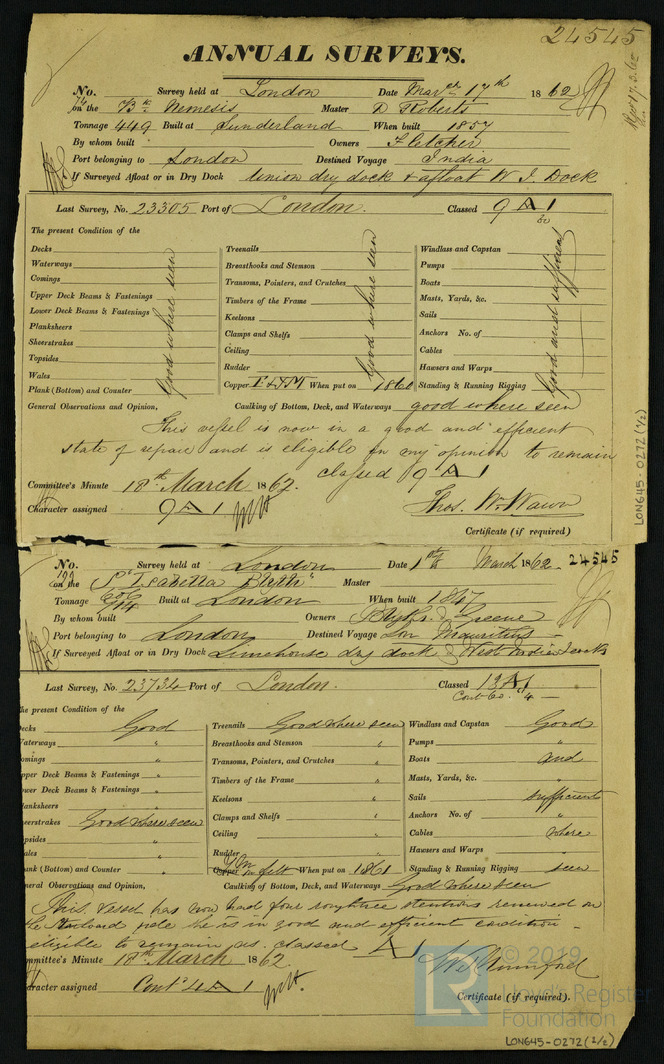 24545
ANNUAL SURVEYS.
No. 74 Survey held at London Date Mar 17th 1862
on the Bk Nemesis Master D Roberts
Tonnage 449 Built at Sunderland When built 1857
By whom built Owners Fletcher
Port belonging to London Destined Voyage India
If Surveyed Afloat or in Dry Dock Union dry dock & afloat W. I. Dock
Last Survey, No. 23305 Port of London. Classed 9 A 1
The present Condition of the
Decks
Waterways
Comings
Upper Deck Beams & Fastenings
Lower Deck Beams & Fastenings
Planksheers
Sheerstrakes
Topsides
Wales
Plank (Bottom) and Counter
Good where seen
Treenails
Breasthooks and Stemson
Transoms, Pointers, and Crutches
Timbers of the Frame
Keelsons
Clamps and Shelfs
Ceiling
Rudder
Copper When put on 1860
Good where seen
Windlass and Capstan
Pumps
Boats
Masts, Yards, &c.
Sails
Anchors No. of
Cables
Hawsers and Warps
Standing & Running Rigging
Good and sufficient
General Observations and Opinion, Caulking of Bottom, Deck, and Waterways good where seen
This vessel is now in a good and efficient
state of repair and is eligible in my opinion to remain
classed 9 A 1
Committee's Minute 18th March 1862.
Character assigned 9 A 1
Thos. W. Wawn
Certificate (if required)
LON645-0272(1/2)
No. 122 Survey held at London Date 17th March 1862 24545
on the S "Isabella Blyth" Master
Tonnage Built at London When built 1847
By whom built Owners Blyths & Greene
Port belonging to London Destined Voyage Lon Mauritius
If Surveyed Afloat or in Dry Dock Limehouse dry dock & West India Docks
Last Survey, No. 23734 Port of London. Classed 12 A 1
Cont 60. 4
he present Condition of the
ecks Good
aterways "
omings "
pper Deck Beams & Fastenings "
ower Deck Beams & Fastenings "
anksheers "
eerstrakes Good where seen
psides "
ales "
ank (Bottom) and Counter "
Treenails Good where seen
Breasthooks and Stemson "
Transoms, Pointers, and Crutches "
Timbers of the Frame "
Keelsons "
Clamps and Shelfs "
Ceiling "
Rudder "
Copper YM on felt When put on 1861
Windlass and Capstan Good
Pumps "
Boats and
Masts, Yards, &c. "
Sails sufficient
Anchors No. of "
Cables where
Hawsers and Warps "
Standing & Running Rigging seen
neral Observations and Opinion, Caulking of Bottom, Deck, and Waterways Good where seen
This vessel has now had four roughtree stentions renewed on
the Starboard side she is in good and efficient condition
eligible to remain as classed A 1
mmittee's Minute 18th March 1862.
aracter assigned Contd 4 A 1
W. Mumford
Certificate (if required).
© 2019
LR
Lloyd's Register
Foundation
LON645-0272(1/2)